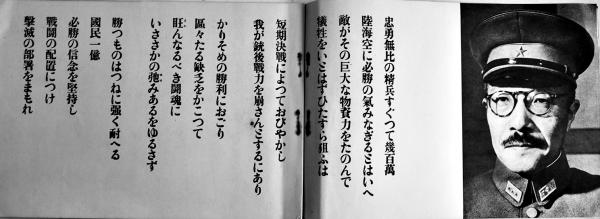 忠勇無比の精兵すぐつて幾百萬
陸海空に必勝の氣みなぎるとはいへ
敵がその巨大な物資力をたのんで
犠牲をいとはずひたすら狙ふは
短期決戰によつておびやかし
我が銃後戰力を崩さんとするにあり
かりそめの勝利におごり
區々たる缺乏をかこつて
旺んなるべき鬪魂に
いささかの弛みあるをゆるさず
勝つものはつねに強く耐へる
國民一億
必勝の信念を堅持し
戰鬪の配置につけ
撃滅の部署をまもれ